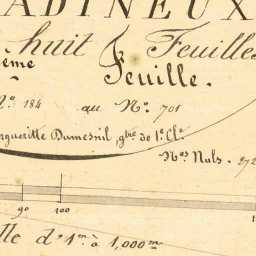 ADINEUX
huit Feuilles
ème Feuille.
No. 184 au No. 701
rgueritte Dumesnil, gtre de 1e Cle
Nos Nuls. 272
90 100
lle d' 1m. à 1,000m